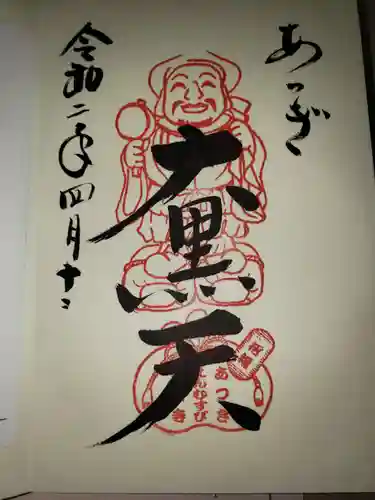 あつぎ
大黒天
令和二年四月十二
あつぎ
えんむすび
寺